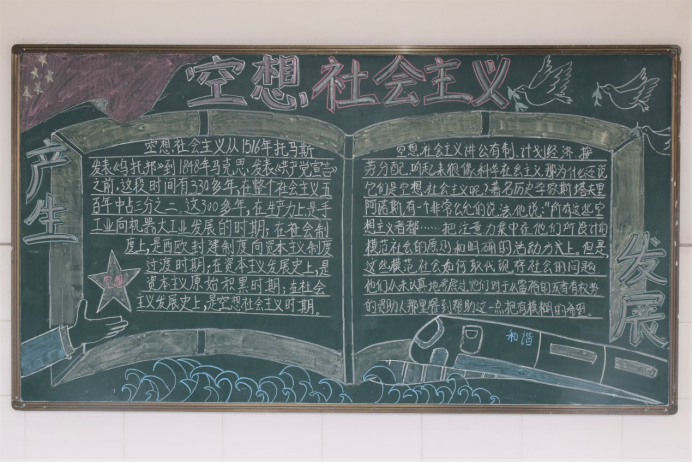 空想社会主义
产生
空想社会主义从1516年托马斯
发表《乌托邦》到1848年马克思发表《共产党宣言》
之前,这段时间有330多年,在整个社会主义五
百年中占三分之二。这300多年,在生产力上,是手
工业向机器大工业发展的时期;在社会制
度上,是西欧封建制度向资本主义制度
过渡时期;在资本主义发展史上,是
资本主义原始积累时期;在社会
主义发展史上,是空想社会主义时期。
空想社会主义讲公有制、计划经济、按
劳分配,听起来很像科学社会主义,那为什么还说
它们是空想社会主义呢?著名历史学家斯塔夫里
阿诺斯,有一个非常公允的说法,他说:"所有这些空
想主义者都……把注意力集中在他们所设计的
模范社会的原则和明确的活动方式上。但是,
这些模范社会如何取代现存社会的问题
他们从未认真地考虑过,他们对于从富裕的或者有权势
的资助人那里得到帮助这一点抱有模糊的希望。
发展
和谐